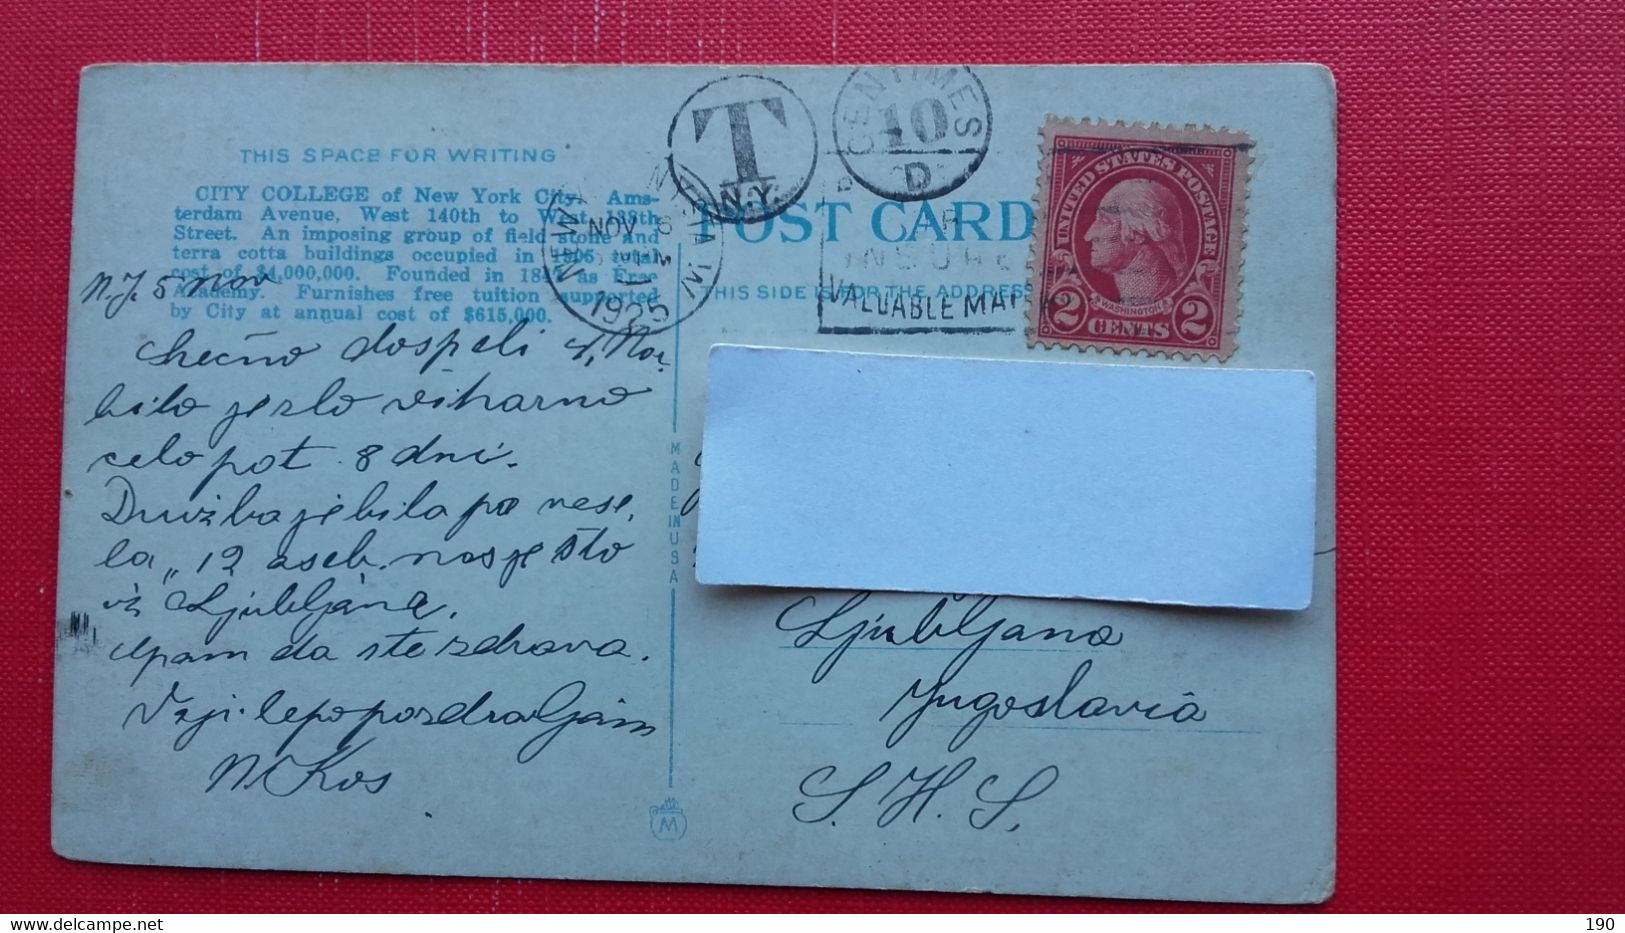 THIS SPACE FOR WRITING
CITY COLLEGE of New York City. Ams-
terdam Avenue, West 140th to West 138th
Street. An imposing group of field stone and
terra cotta buildings occupied in 1906 total
cost of $4,000,000. Founded in 1847 as Free
Academy. Furnishes free tuition supported
by City at annual cost of $615,000.
N.Y. 5 Nov
srečno dospeli 4, Nov.
bilo je zlo viharno
celo pot 8 dni.
Družba je bila pa vese,
la, 12 aseb. nas je što
iz Ljubljane.
Upam da ste zdrava.
Vsi lepo pozdravljam
M Kos
MADE IN USA
M
T
N.Y.
CENTIMES
10
D
NOV 6
11
1925
POST CARD
THIS SIDE IS FOR THE ADDRESS
INSURE
VALUABLE MAI
UNITED STATES POSTAGE
WASHINGTON
2 CENTS 2
Ljubljana
Jugoslavia
S. H. S.
190